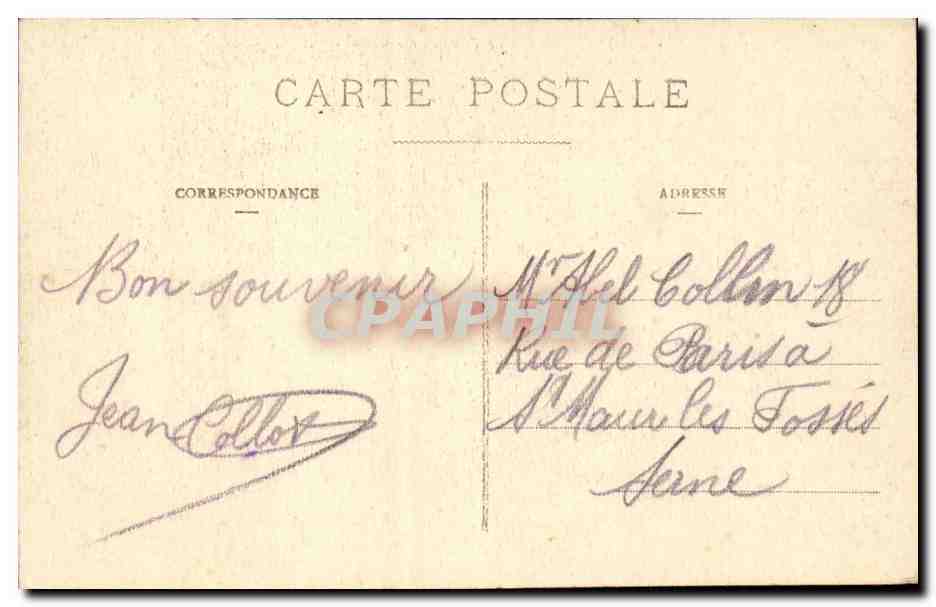 CARTE POSTALE
CORRESPONDANCE
ADRESSE
Bon souvenir
Jean Collot
Mr Abel Collin 18
Rue de Paris à
St Maur les Fossés
Seine
CPAPHIL